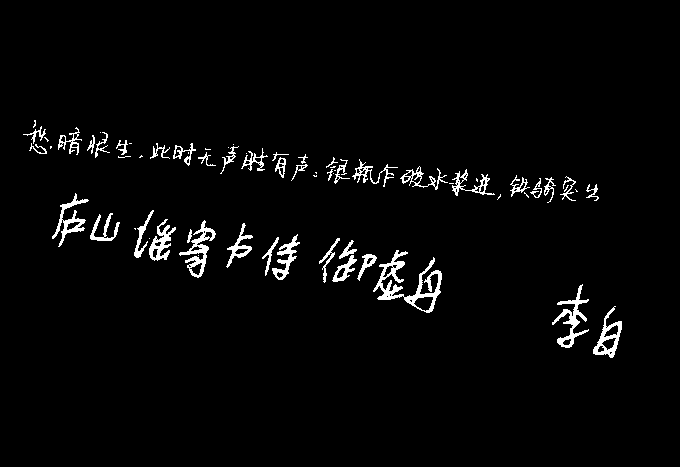 愁暗恨生，此时无声胜有声。银瓶乍破水浆迸，铁骑突出
庐山谣寄卢侍御虚舟
李白